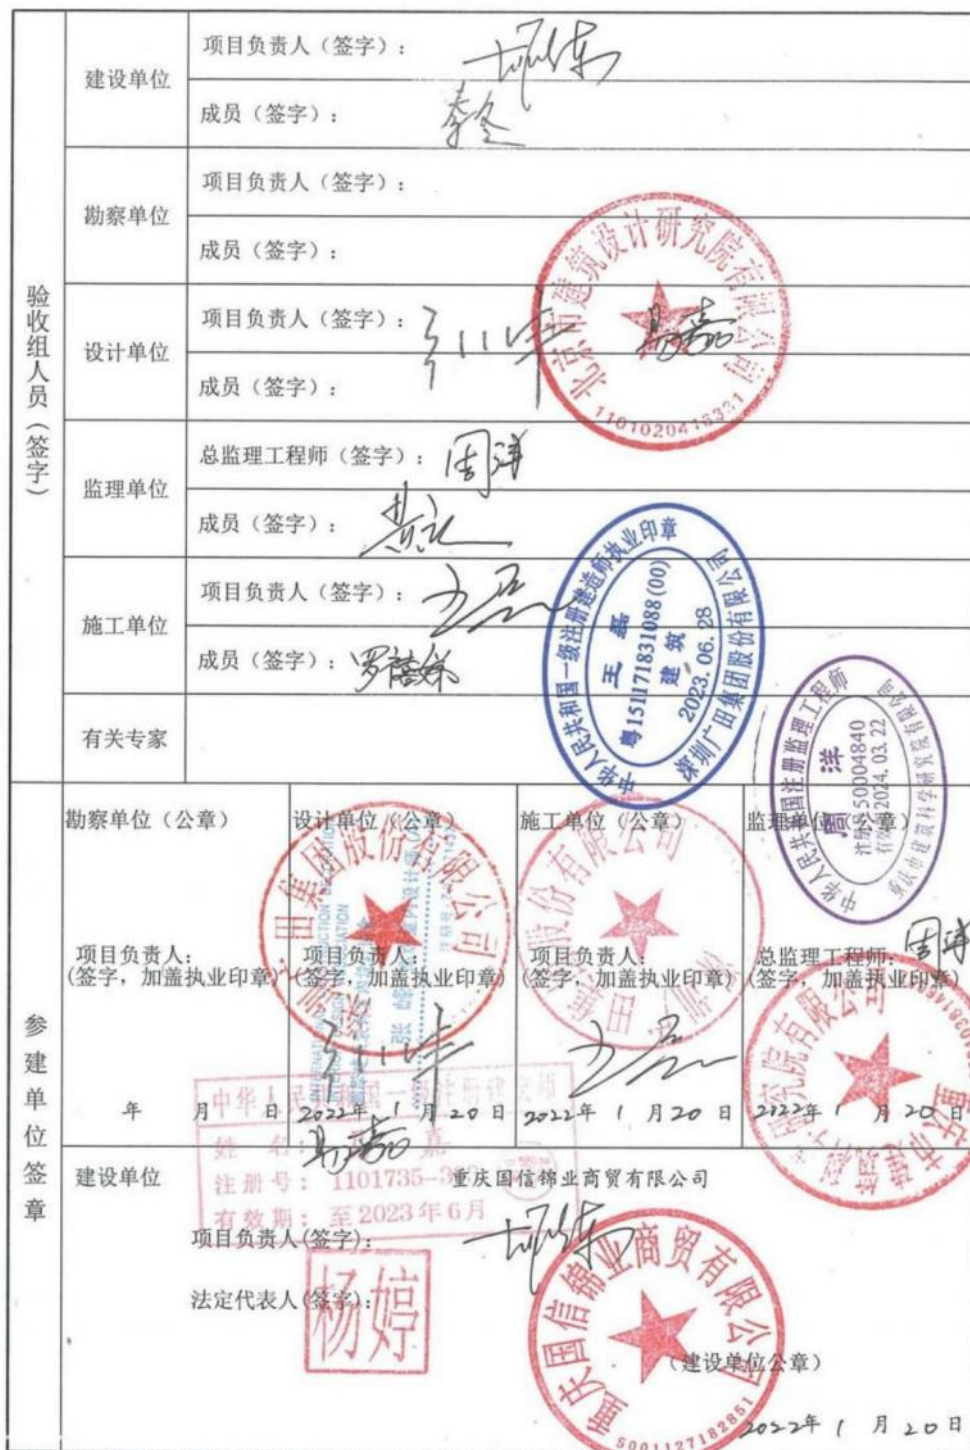 验收组人员(签字)
建设单位
项目负责人(签字):
成员(签字):
勘察单位
项目负责人(签字):
成员(签字):
设计单位
项目负责人(签字):
成员(签字):
北京市建筑设计研究院有限公司
1101020416331
监理单位
总监理工程师(签字): 周洋
成员(签字):
施工单位
项目负责人(签字): 王磊
成员(签字):
中华人民共和国一级注册建造师执业印章
王 磊
粤1511171831088(00)
建 筑
2023.06.28
深圳广田集团股份有限公司
有关专家
中华人民共和国注册监理工程师
周 洋
注册号50004840
有效期2024.03.22
重庆市建筑科学研究院有限公司
参建单位签章
勘察单位(公章)
项目负责人:
(签字,加盖执业印章)
年 月 日
设计单位(公章)
项目负责人:
(签字,加盖执业印章)
2022年 1 月 20 日
施工单位(公章)
项目负责人:
(签字,加盖执业印章)
王磊
2022年 1 月 20 日
监理单位(公章)
总监理工程师: 周洋
(签字,加盖执业印章)
2022年 1 月 20 日
中华人民共和国一级注册建筑师
姓 名: 嘉
注册号: 1101735-
有效期: 至2023年6月
建设单位
重庆国信锦业商贸有限公司
项目负责人(签字):
法定代表人(签字):
杨婷
重庆国信锦业商贸有限公司
5001127182851
(建设单位公章)
2022年 1 月 20 日